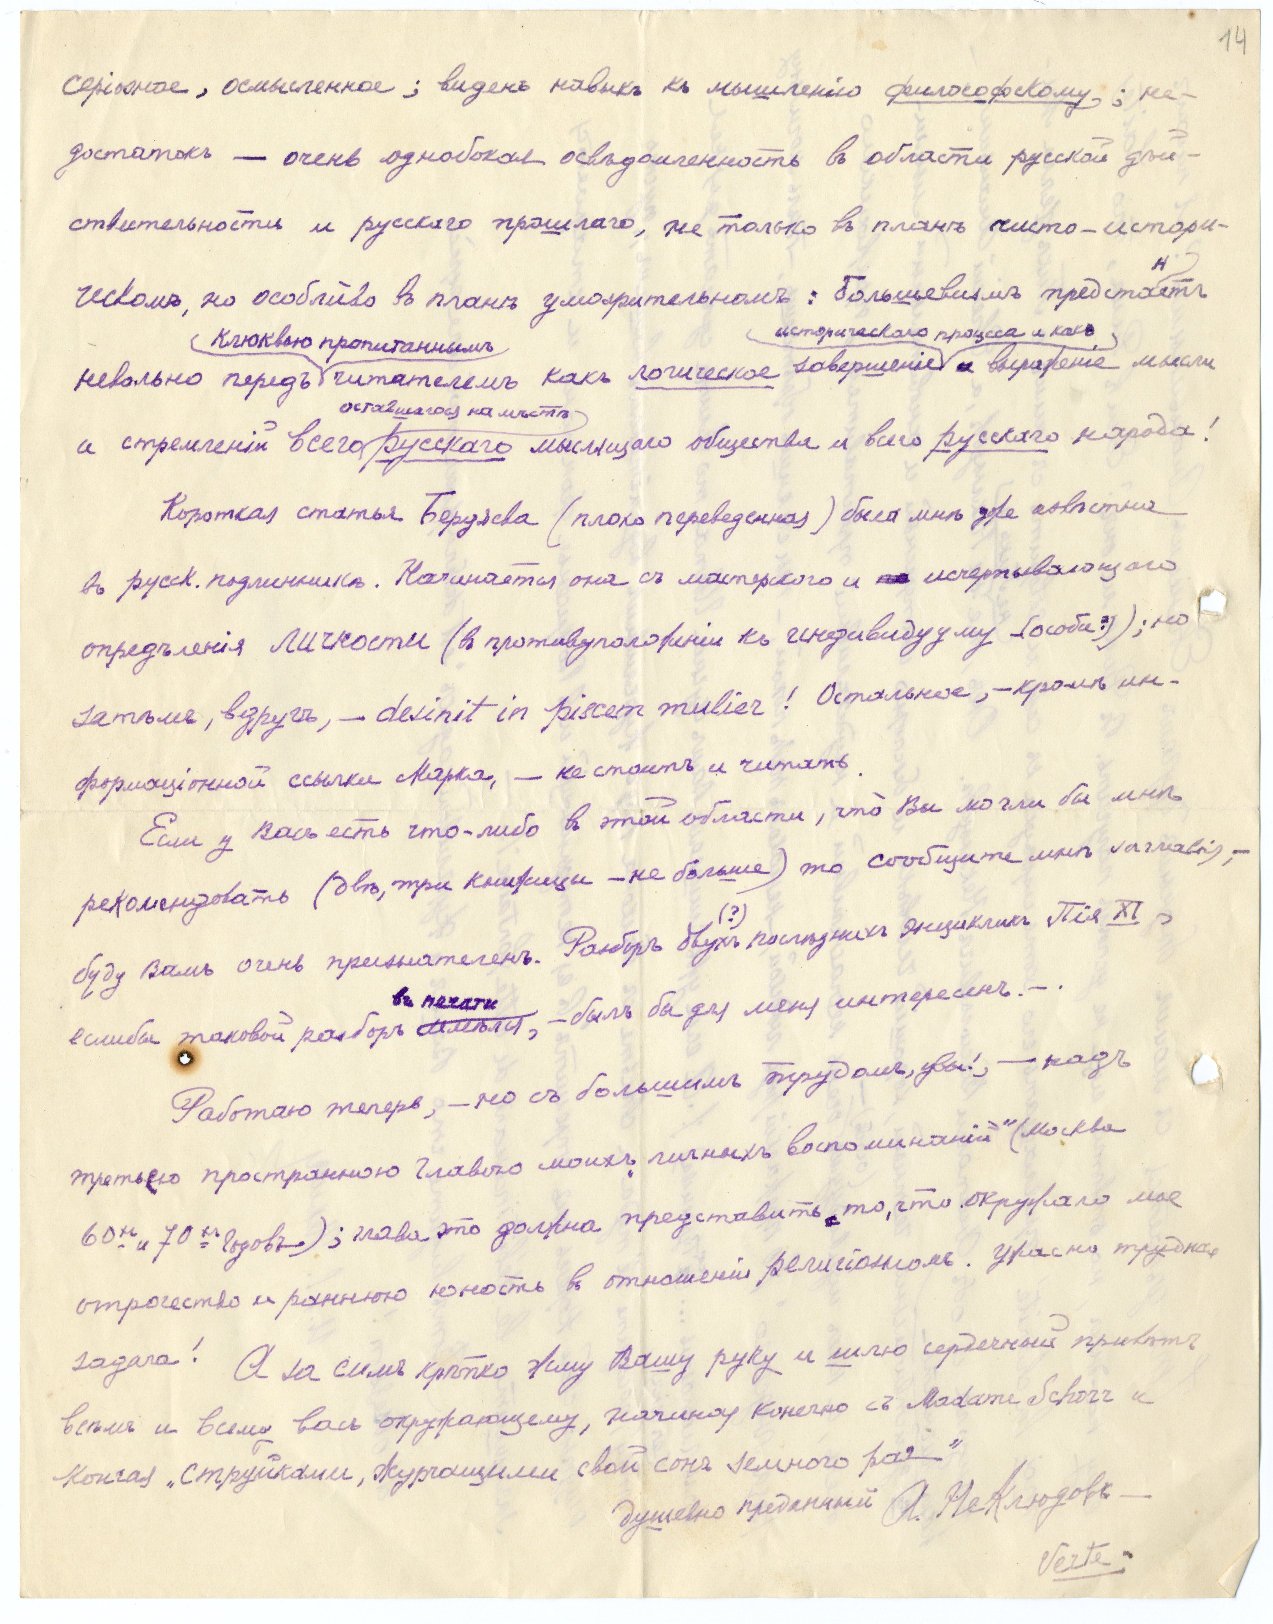 14
серіозное, осмысленное; виденъ навыкъ къ мышленію философскому; не-
достатокъ — очень однобокая освѣдомленность въ области русской дѣй-
ствительности и русскаго прошлаго, не только въ планѣ чисто-истори-
ческомъ, но особливо въ планѣ умозрительномъ: большевизмъ предстаетъ
н
клюквою пропитаннымъ
историческаго процесса и какъ
невольно передъ читателемъ какъ логическое завершеніе и выраженіе мысли
оставшагося на мѣстѣ
и стремленій всего русскаго мыслящаго общества и всего русскаго народа!
Короткая статья Бердяева (плохо переведенная) была мнѣ уже извѣстна
въ русск. подлинникѣ. Начинается она съ мастерского и исчерпывающаго
опредѣленія личности (въ противуположеніи къ индивидууму [особи?]); но
затѣмъ, вдругъ, — desinit in piscem mulier! Остальное, — кромѣ ин-
формаціонной ссылки Марка, — не стоитъ и читать.
Если у Васъ есть что-либо въ этой области, что Вы могли бы мнѣ
рекомендовать (двѣ, три книжицы — не больше) то сообщите мнѣ заглавія, —
буду Вамъ очень признателенъ. Разборъ двухъ послѣднихъ энцикликъ Пія XI,
(?)
въ печати
еслибы таковой разборъ имѣлся, — былъ бы для меня интересенъ. —.
Работаю теперь, — но съ большимъ трудомъ, увы!, — надъ
третьею пространною главою моихъ „личныхъ воспоминаній“ (Москва
60хъ и 70хъ годовъ); глава эта должна представить то, что окружало мое
отрочество и раннюю юность въ отношеніи религіозномъ. Ужасно трудная
задача! А за симъ крѣпко жму Вашу руку и шлю сердечный привѣтъ
всѣмъ и всему васъ окружающему, начиная конечно съ Madame Schorr и
кончая „струйками, журчащими свой сонъ земного рая“
душевно преданный А. Неклюдовъ —
Verte: